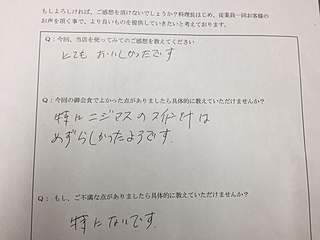 もしよろしければ、ご感想を頂けないでしょうか？料理長はじめ、従業員一同お客様の
お声を頂く事で、より良いものを提供していきたいと考えております。
Q：今回、当店を使ってみてのご感想を教えてください
とても おいしかったです
Q：今回の御会食でよかった点がありましたら具体的に教えていただけませんか？
特に ニジマス の は
めずらしかったようです.
Q： もし、ご不満な点がありましたら具体的に教えていただけませんか？
特に ないです.